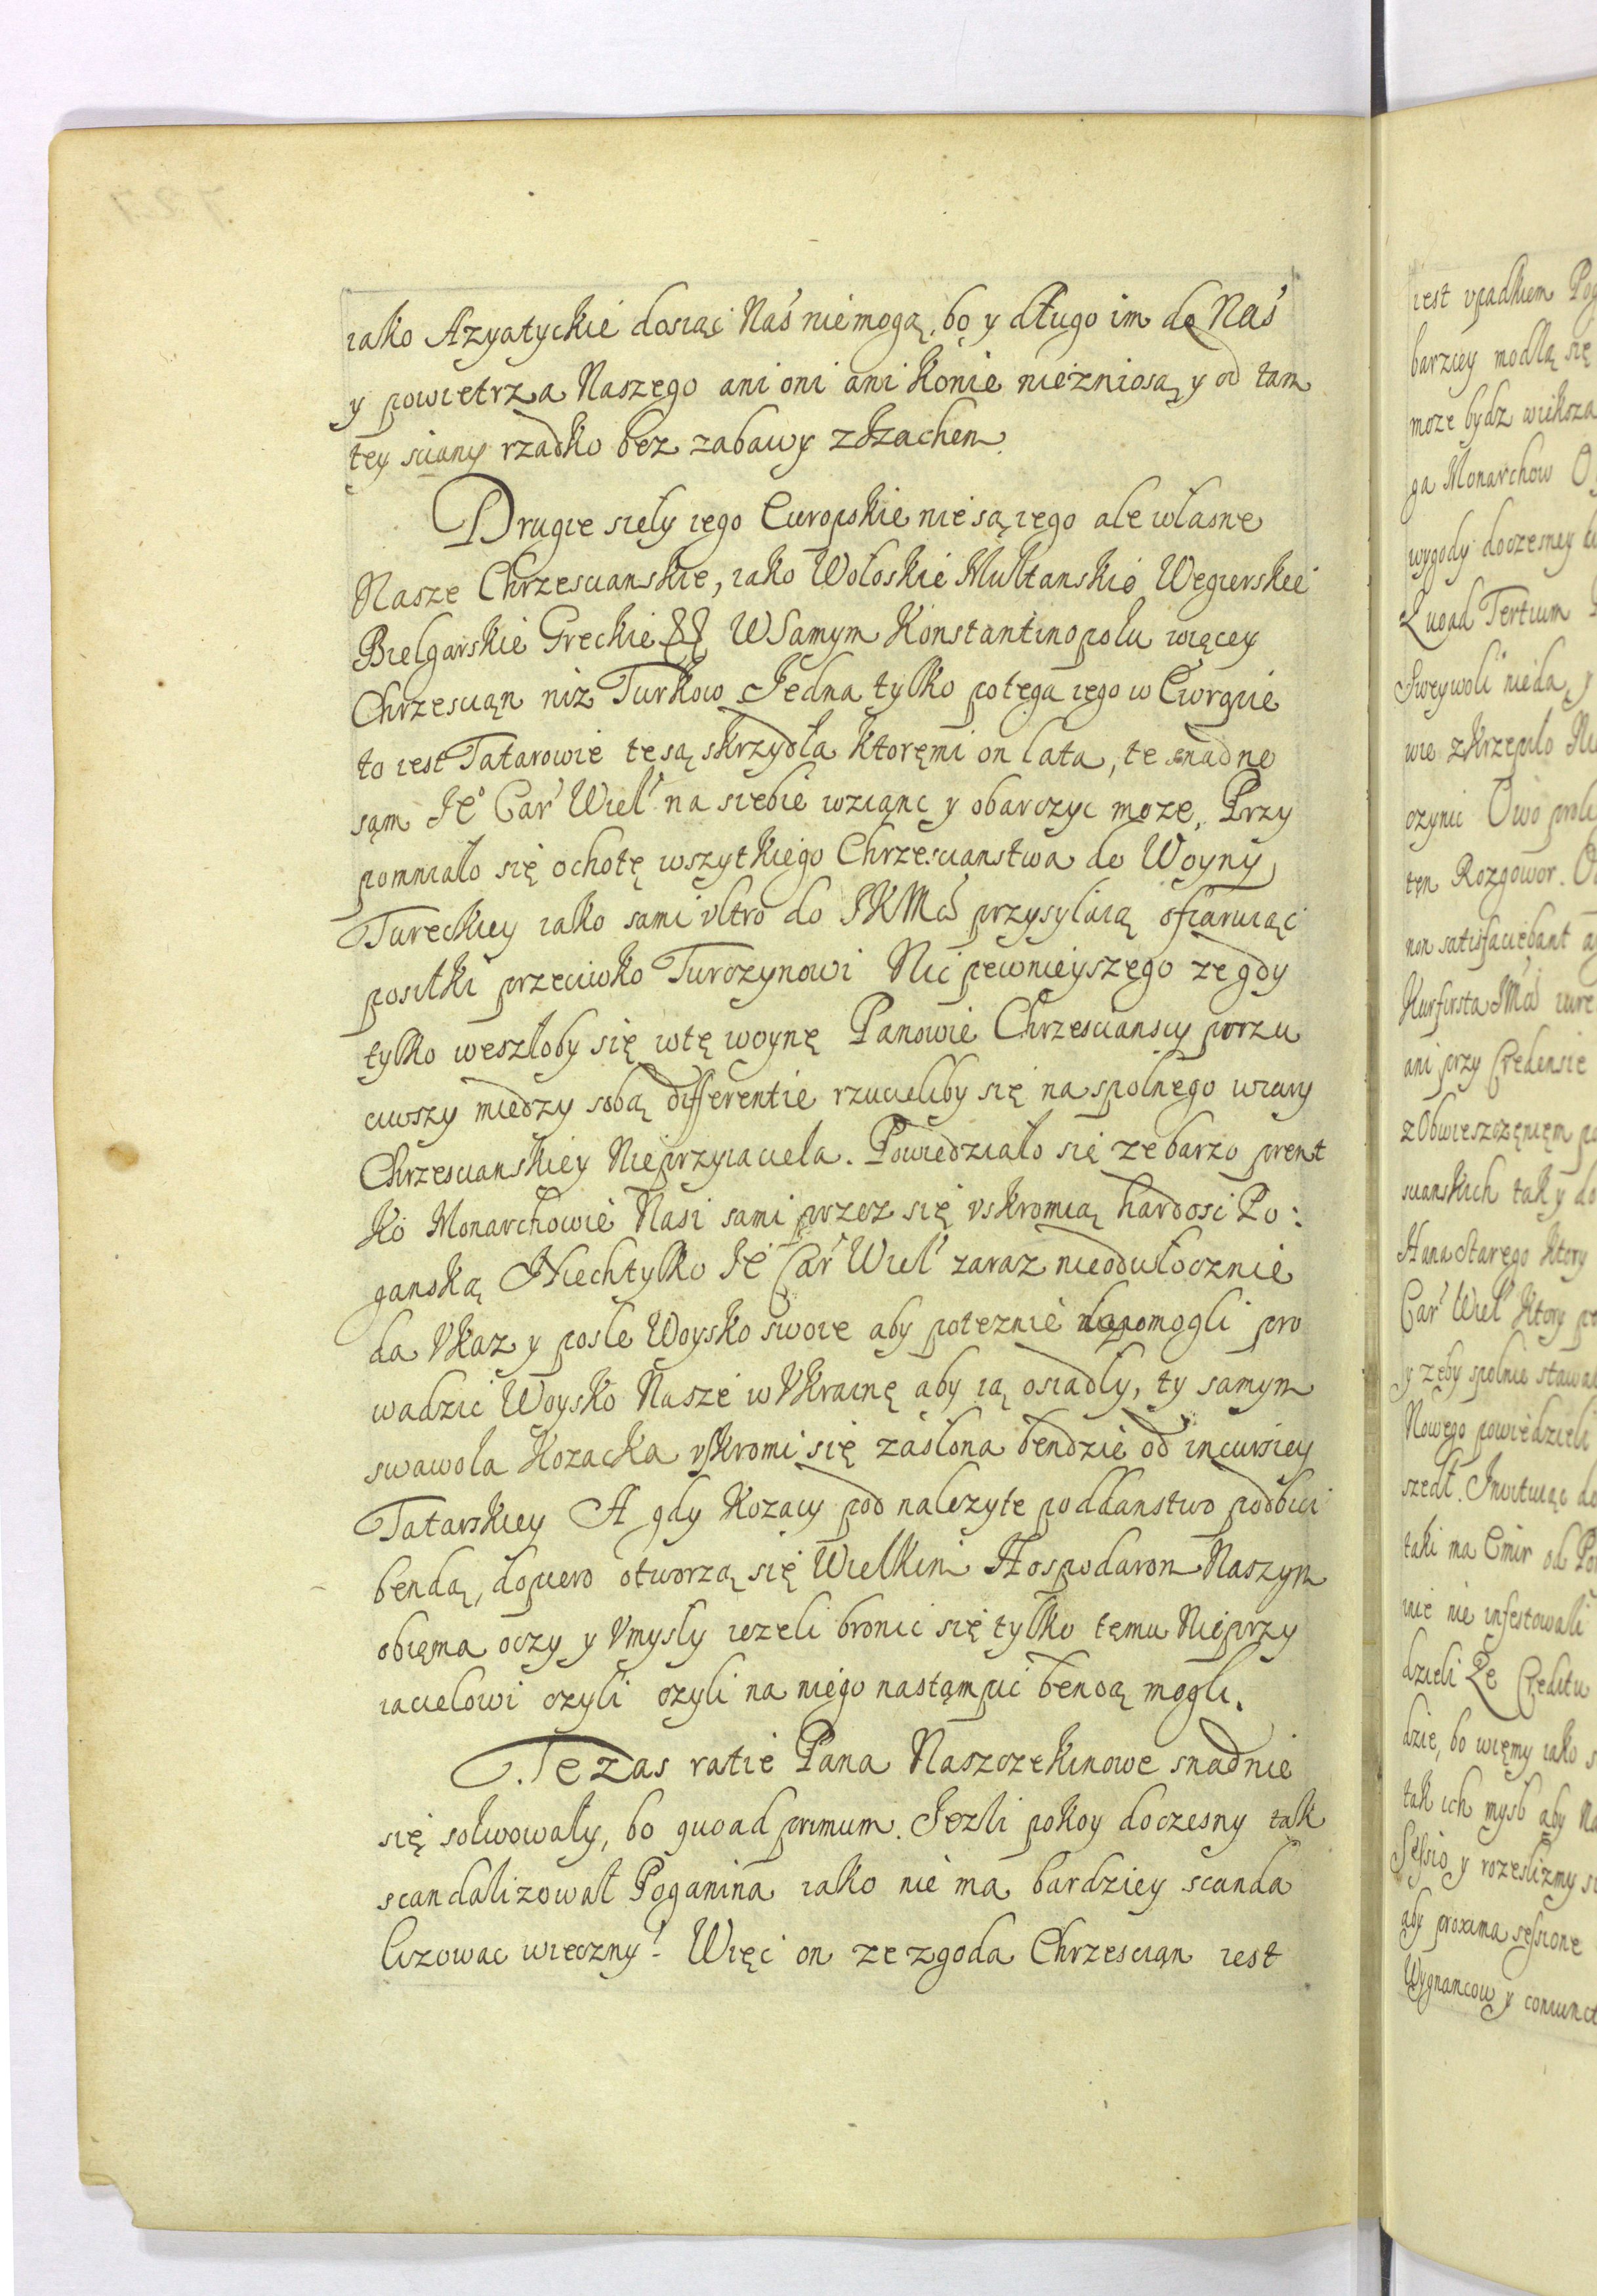 iako Azyatyckie dosiąc Naś niemogą, bo y długo im do Naś
y powietrza Naszego ani oni ani konie niezniosą y od tam
tey sciany rzadko bez zabawy
Drugie sieły iego Europskie nie są iego ale własne
Nasze Chrzescianskie, iako Wołoskie Multanskie Wegierskie
Bielgarskie Greckie WSamym Konstantinopolu więcey
Chrzescian niz Turkow Jedna tylko potęga iego w Europie
to iest Tatarowie te są skrzydła ktoremi on lata, te snadno
sąm Je° Car Wiel na siebie wziąnc y obarczyc moze, Przy
pomniało się ochotę wszytkiego Chrzescianstwa do Woyny
Tureckiey iako sami vltro do JKMci przysyłaią ofiaruiąc
posiłki przeciwko Turczynowi Nic pewnieyszego ze gdy
tylko weszłoby się wtę woynę Panowie Chrzescianscy porzu
ciwszy miedzy sobą differentie rzucieliby się na spolnego wiary
Chrzescianskiey Nieprzyiaciela. Powiedziało się ze barzo prent
ko Monarchowie Nasi sami przez się vskromią hardosc Po:
ganską Niechtylko Je Car Wiel zaraz nieodwłocznie
da Vkaz y posle Woysko swoie aby poteznie dopomogli pro
wadzic Woysko Nasze w Vkrainę aby ią osiadły, ty samym
swawola Kozacka vskromi się zasłona bendzie od incursiey
Tatarskiey A gdy Kozacy pod nalezyte poddanstwo podbici
bendą, dopiero otworzą się Wielkim Hospodarom Naszym
obięma oczy y Vmysly iezeli bronic się tylko temu Nieprzy
iacielowi czyli czyli na niego nastąmpic bendą mogli.
Te zas ratie Pana Naszczekinowe snadnie
się solwowały, bo quoad primum. Jezli pokoy doczesny tak
scandalizował Poganina iako nie ma bardziey scanda
lizowac wieczny! Więc on ze zgoda Chrzescian iest
iest vpadkiem
barziey modlą się
moze bydz wiksza
ga Monarchow
wygody doczesney
Quoad Tertium
Sweywoli nieda y
wie zkrzepiło
czynic Owo
ten Rozgowor.
non satisfaciebant
Kurfirsta JMci
ani przy Credensie
zObwieszczęnięm
scianskich tak y do
Hana Starego ktory
Car Wiel ktory
y zeby spolnie
Nowego powiedzieli
szedł. Inwituiąc do
taki ma Emir od
nie infestowali
dzieli Ze Creditu
dzie, bo więmy iako
tak ich mysl aby
Sessio y rozeslizmy
aby proxima sessione
Wygnancow y